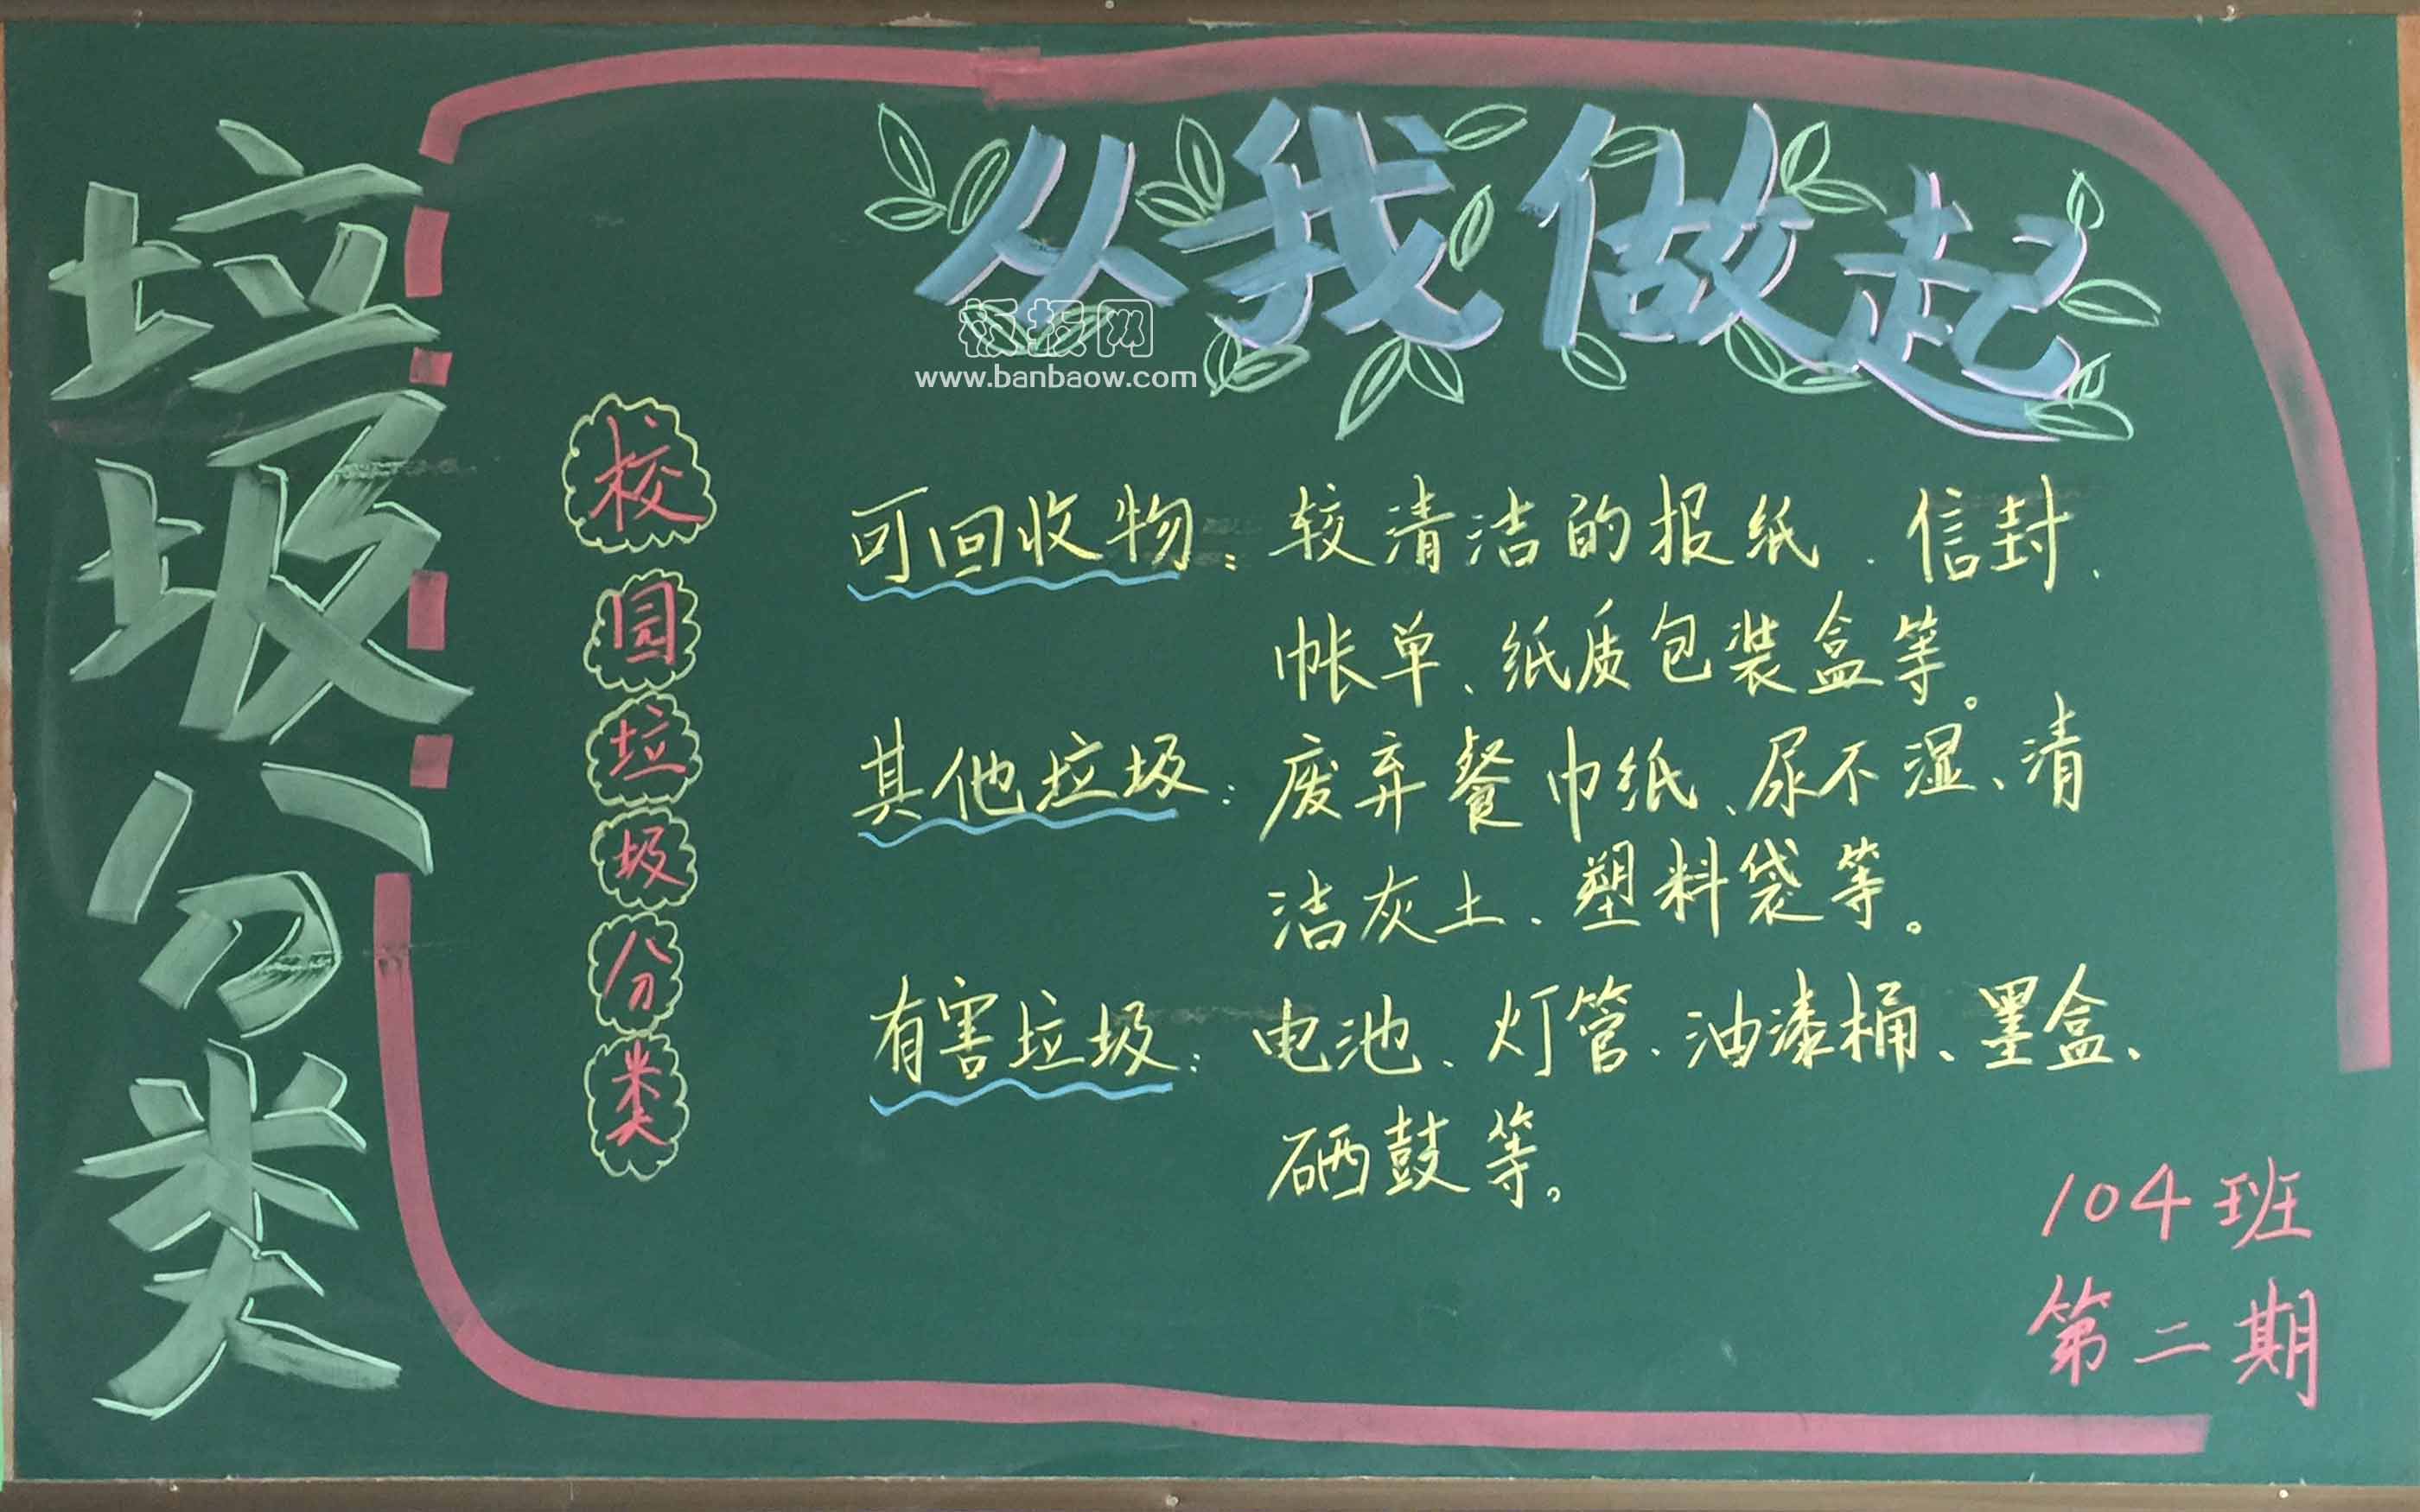 垃圾分类
从我做起
版报网
www.banbaow.com
校园垃圾分类
可回收物：较清洁的报纸、信封、
帐单、纸质包装盒等。
其他垃圾：废弃餐巾纸、尿不湿、清
洁灰土、塑料袋等。
有害垃圾：电池、灯管、油漆桶、墨盒、
硒鼓等。
104班
第二期